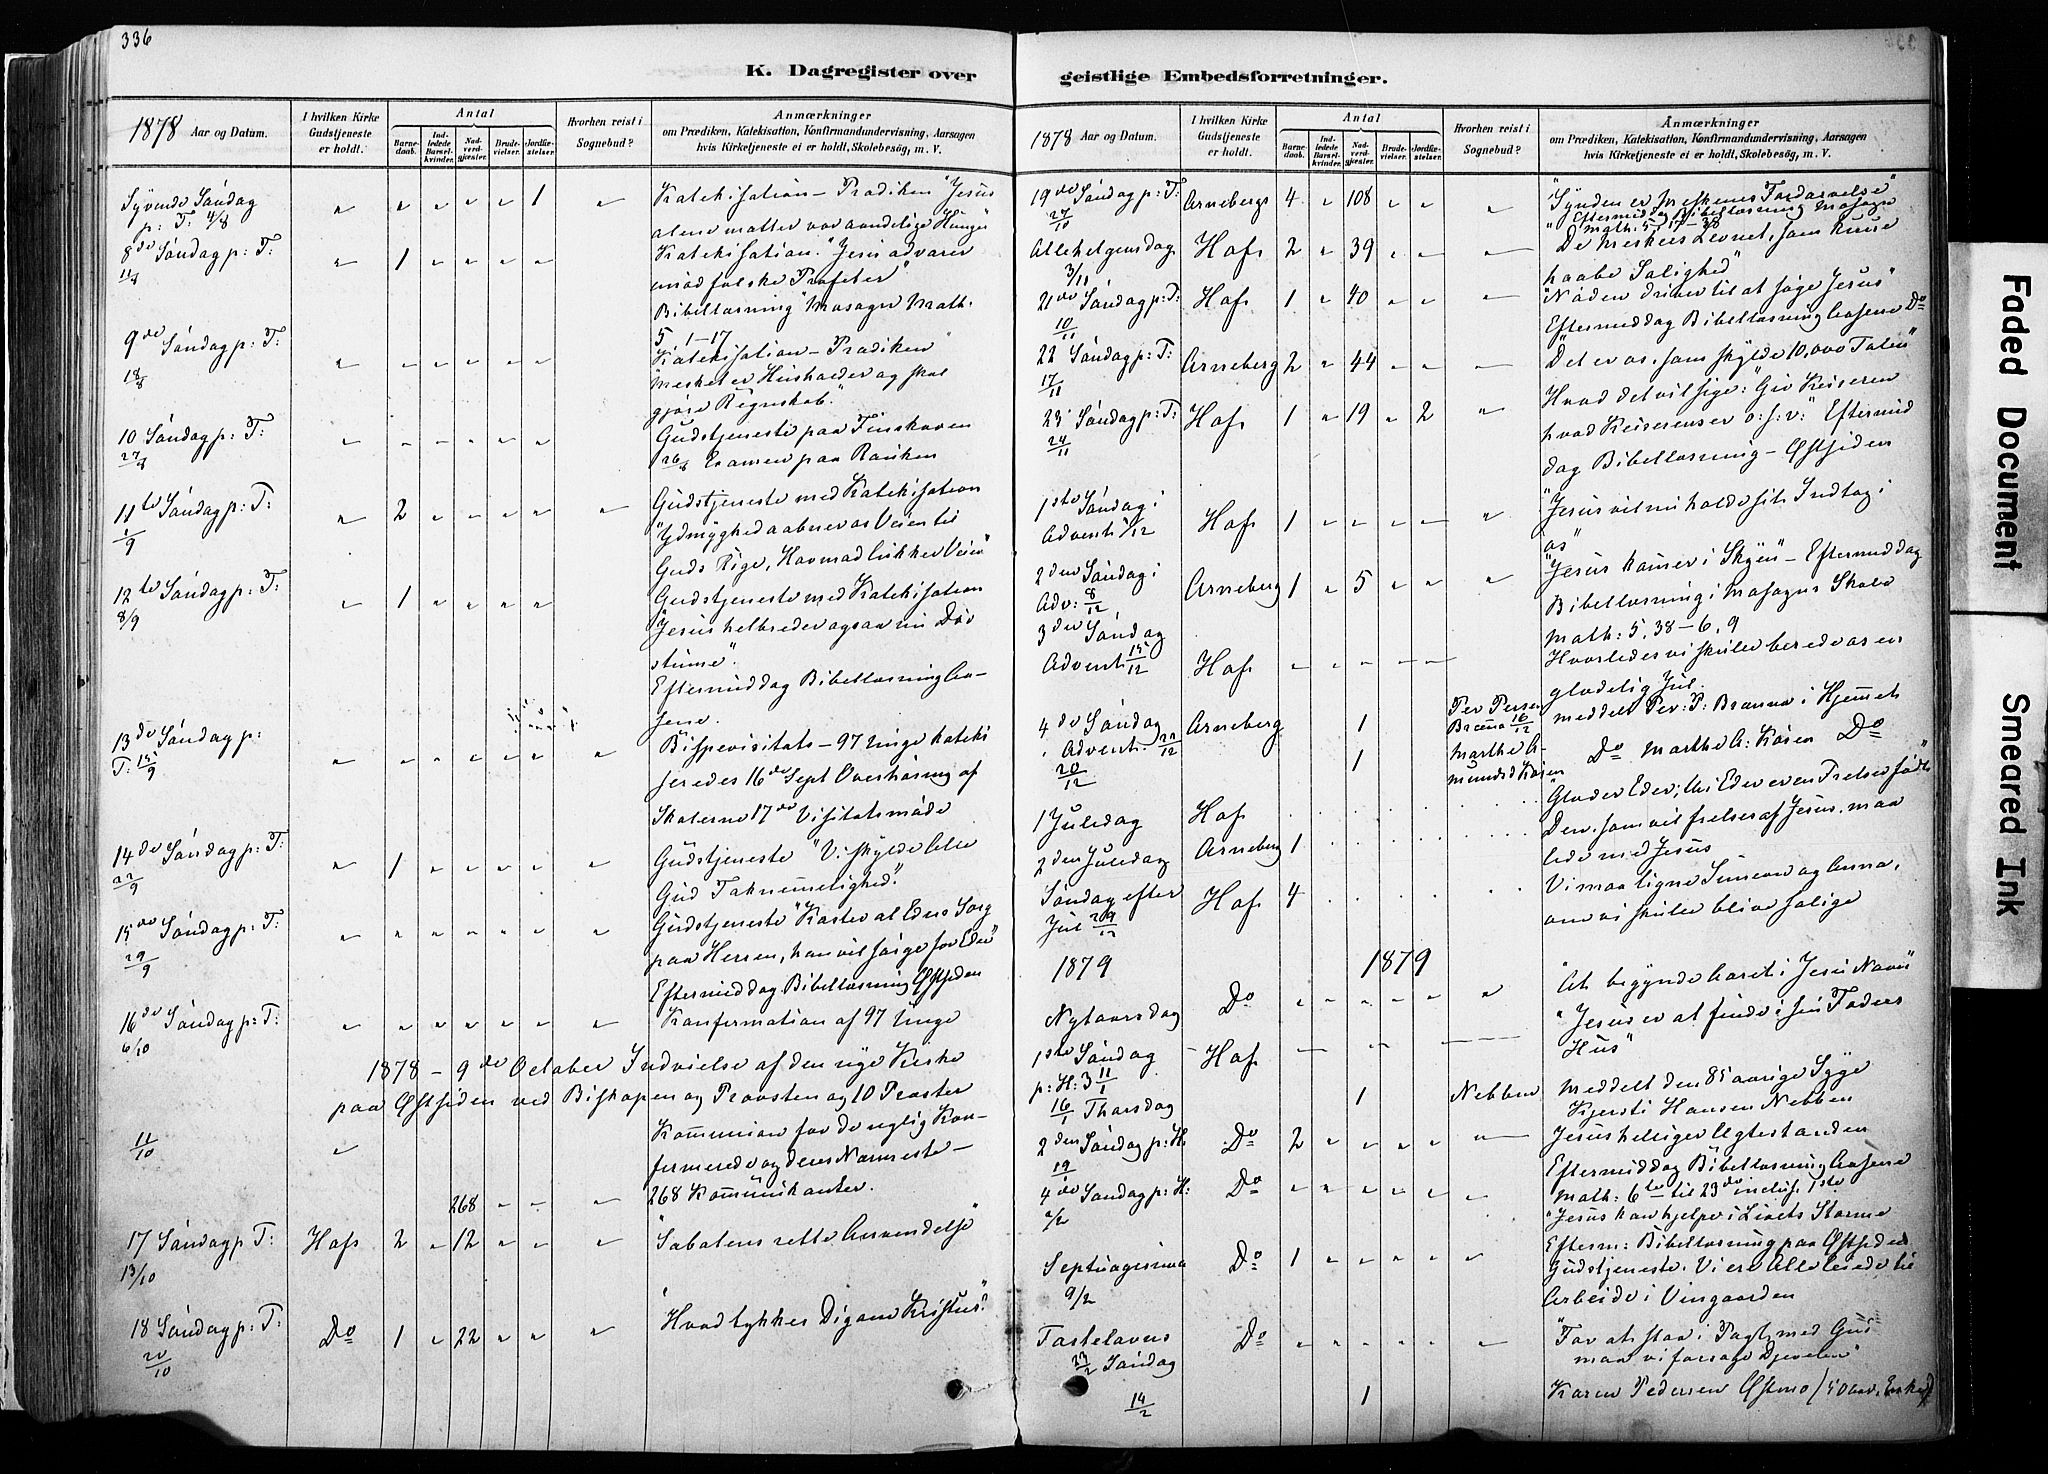 336
K. Dagregister over
1878 Aar og Datum.
I hvilken Kirke Gudstjeneste er holdt.
Antal
Barnedaab.
Indledede Barselkvinder.
Nadverdgjester.
Brudevielser.
Jordfæstelser.
Hvorhen reist i Sognebud?
Anmærkninger
om Prædiken, Katekisation, Konfirmandundervisning, Aarsagen
hvis Kirketjeneste ei er holdt, Skolebesøg, m. V.
Syvende Søndag " " " " " 1 " Katekisation – Prædiken "Jesus
p: T: 4/8 alene mætter vor aandelige Hunger
8de Søndag p: T: " 1 " " " " Katekisation. "Jesu advarer
11/8 mod falske Profeter"
Bibellæsning Masager Math.
5, 1–17
9de Søndag p: T: " " " " " " Katekisation – Prædiken
18/8 Mesket er Husholder og skal
gjøre Regnskab."
10 Søndag p: T: " " " " " " Gudstjeneste paa Finskoven
27/8 26/8 Examen paa
11te Søndag p: T: " 2 " " " " " Gudstjeneste med Katekisation
1/9 "Ydmyghed aabner os Veien til
Guds Rige, Hovmod lukker Veien"
12te Søndag p: T: " 1 " " " " Gudstjeneste med Katekisation
8/9 "Jesus helbreder ogsaa nu Døv
stumme".
Eftermiddag Bibellæsning Aa-
sene.
13de Søndag p: " " " " " " " Bispevisitats – 97 Unge kateki
T: 15/9 seredes 16de Sept Overhøring af
Skolerne 17de Visitatsmøde
14de Søndag p: T: " 1 " " " " " Gudstjeneste "Vi skylde Alle
22/9 Gud Taknemmelighed".
15de Søndag p: T: " " " " " " " Gudstjeneste "Kaster al Eders Sorg
29/9 paa Herren, han vil sørge for Eder"
Eftermiddag Bibellæsning Østsiden
16de Søndag p: T: " " " " " " " Konfirmation af 97 Unge
6/10
1878 – 9de October Indvielse af den nye Kirke
paa Østsiden ved Biskopen og Provsten og 10 Præster
11/10 " Kommunion for de nylig Kon-
firmerede og deres Nærmeste –
268 " " " 268 Kommunikanter.
17 Søndag p T: Hofs 2 " 12 " " " "Sabatens rette Anvendelse"
13/10
18 Søndag p: T: Do 1 " 22 " " " Hvad tykkes Dig om Kristus?
20/10
geistlige Embedsforretninger.
1878 Aar og Datum.
I hvilken Kirke Gudstjeneste er holdt.
Antal
Barnedaab.
Indledede Barselkvinder.
Nadverdgjester.
Brudevielser.
Jordfæstelser.
Hvorhen reist i Sognebud?
Anmærkninger
om Prædiken, Katekisation, Konfirmandundervisning, Aarsagen
hvis Kirketjeneste ei er holdt, Skolebesøg, m. V.
19de Søndag p: T: Arnebergs 4 " 108 " " " "Synden er Meskenes Fordærvelse"
27/10 Eftermiddag Bibellæsning Masager
" Math. 5, 17–38
Allehelgensdag Hofs 2 " 39 " " " De Meskers Levnet, som kunne
3/11 haabe Salighed"
21de Søndag p: T: Hofs 1 " 40 " " " "Nøden driver til at søge Jesus"
10/11 Eftermiddag Bibellæsning Aasene Do
22 Søndag p: T: Arneberg 2 " 44 " " " "Det er os, som skylde 10,000 Talen"
17/11
23 Søndag p: T: Hofs 1 " 19 " 2 " Hvad det vil sige: "Giv Keiseren
24/11 hvad Keiserens er o: s: v:" Eftermid
dag Bibellæsning – Østsiden
1ste Søndag i Hofs 1 " " " " " "Jesus vil nu holde sit Indtog i
Advent 1/12 os"
2den Søndag i Arneberg 1 " 5 " " " "Jesus kommer i Skyen" – Eftermiddag
Adv: 8/12 Bibellæsning i Masager Skole
Math: 5, 38 – 6, 9
3die Søndag
Advent 15/12 Hofs Hvorledes vi skulle berede os en
glædelig Jul.
4de Søndag Arneberg 1 Per Persen Meddelt Per: P: Brænna i Hjemmet
Advent 22/12 Brænna 16/12
20/12 1 Marthe A- Do Marthe A: Kosen Do
mundsd Kosen
1 Juledag Hofs Glæder Eder, thi Eder er en Frelser født"
2den Juledag Arneberg 1 Den, som vil frelses af Jesus, maa
lide med Jesus
Søndag efter Hofs 4 Vi maa ligne Simeon og Anna,
Jul 29/12 om vi skulle blive salige
1879 1879
Nytaarsdag Do " " " " " " "At begynde Aaret i Jesu Navn"
1ste Søndag Hofs "Jesus er at finde i sin Faders
p: H: 3 11/1 Hus"
16/1 Thorsdag 1 Nebben Meddelt den 85 aarige Syge
Kjersti Hansen Nebben
2den Søndag p: H. Do 2 " " " " " Jesus helliger Ægtestanden
19/1 Eftermiddag Bibellæsning Aasene
Math: 6te til 23de inclus. 1ste
4de Søndag p: H: Do " " " " " " "Jesus kan hjelpe i Livets Storme
2/2 Efterm: Bibellæsning paa Østsiden
Septuagesima Do 1 " " " " " Gudstjeneste. Vi ere Alle leiede til
9/2 Arbeide i Vingaarden
Fastelavns Do " " " " " " "For at staa i Pagt med Gud
23/2 Søndag maa vi forsage Djevelen"
14/2 1 Karen Pedersen Østmo / 50 aar, Enke
Faded Document
Smeared Ink